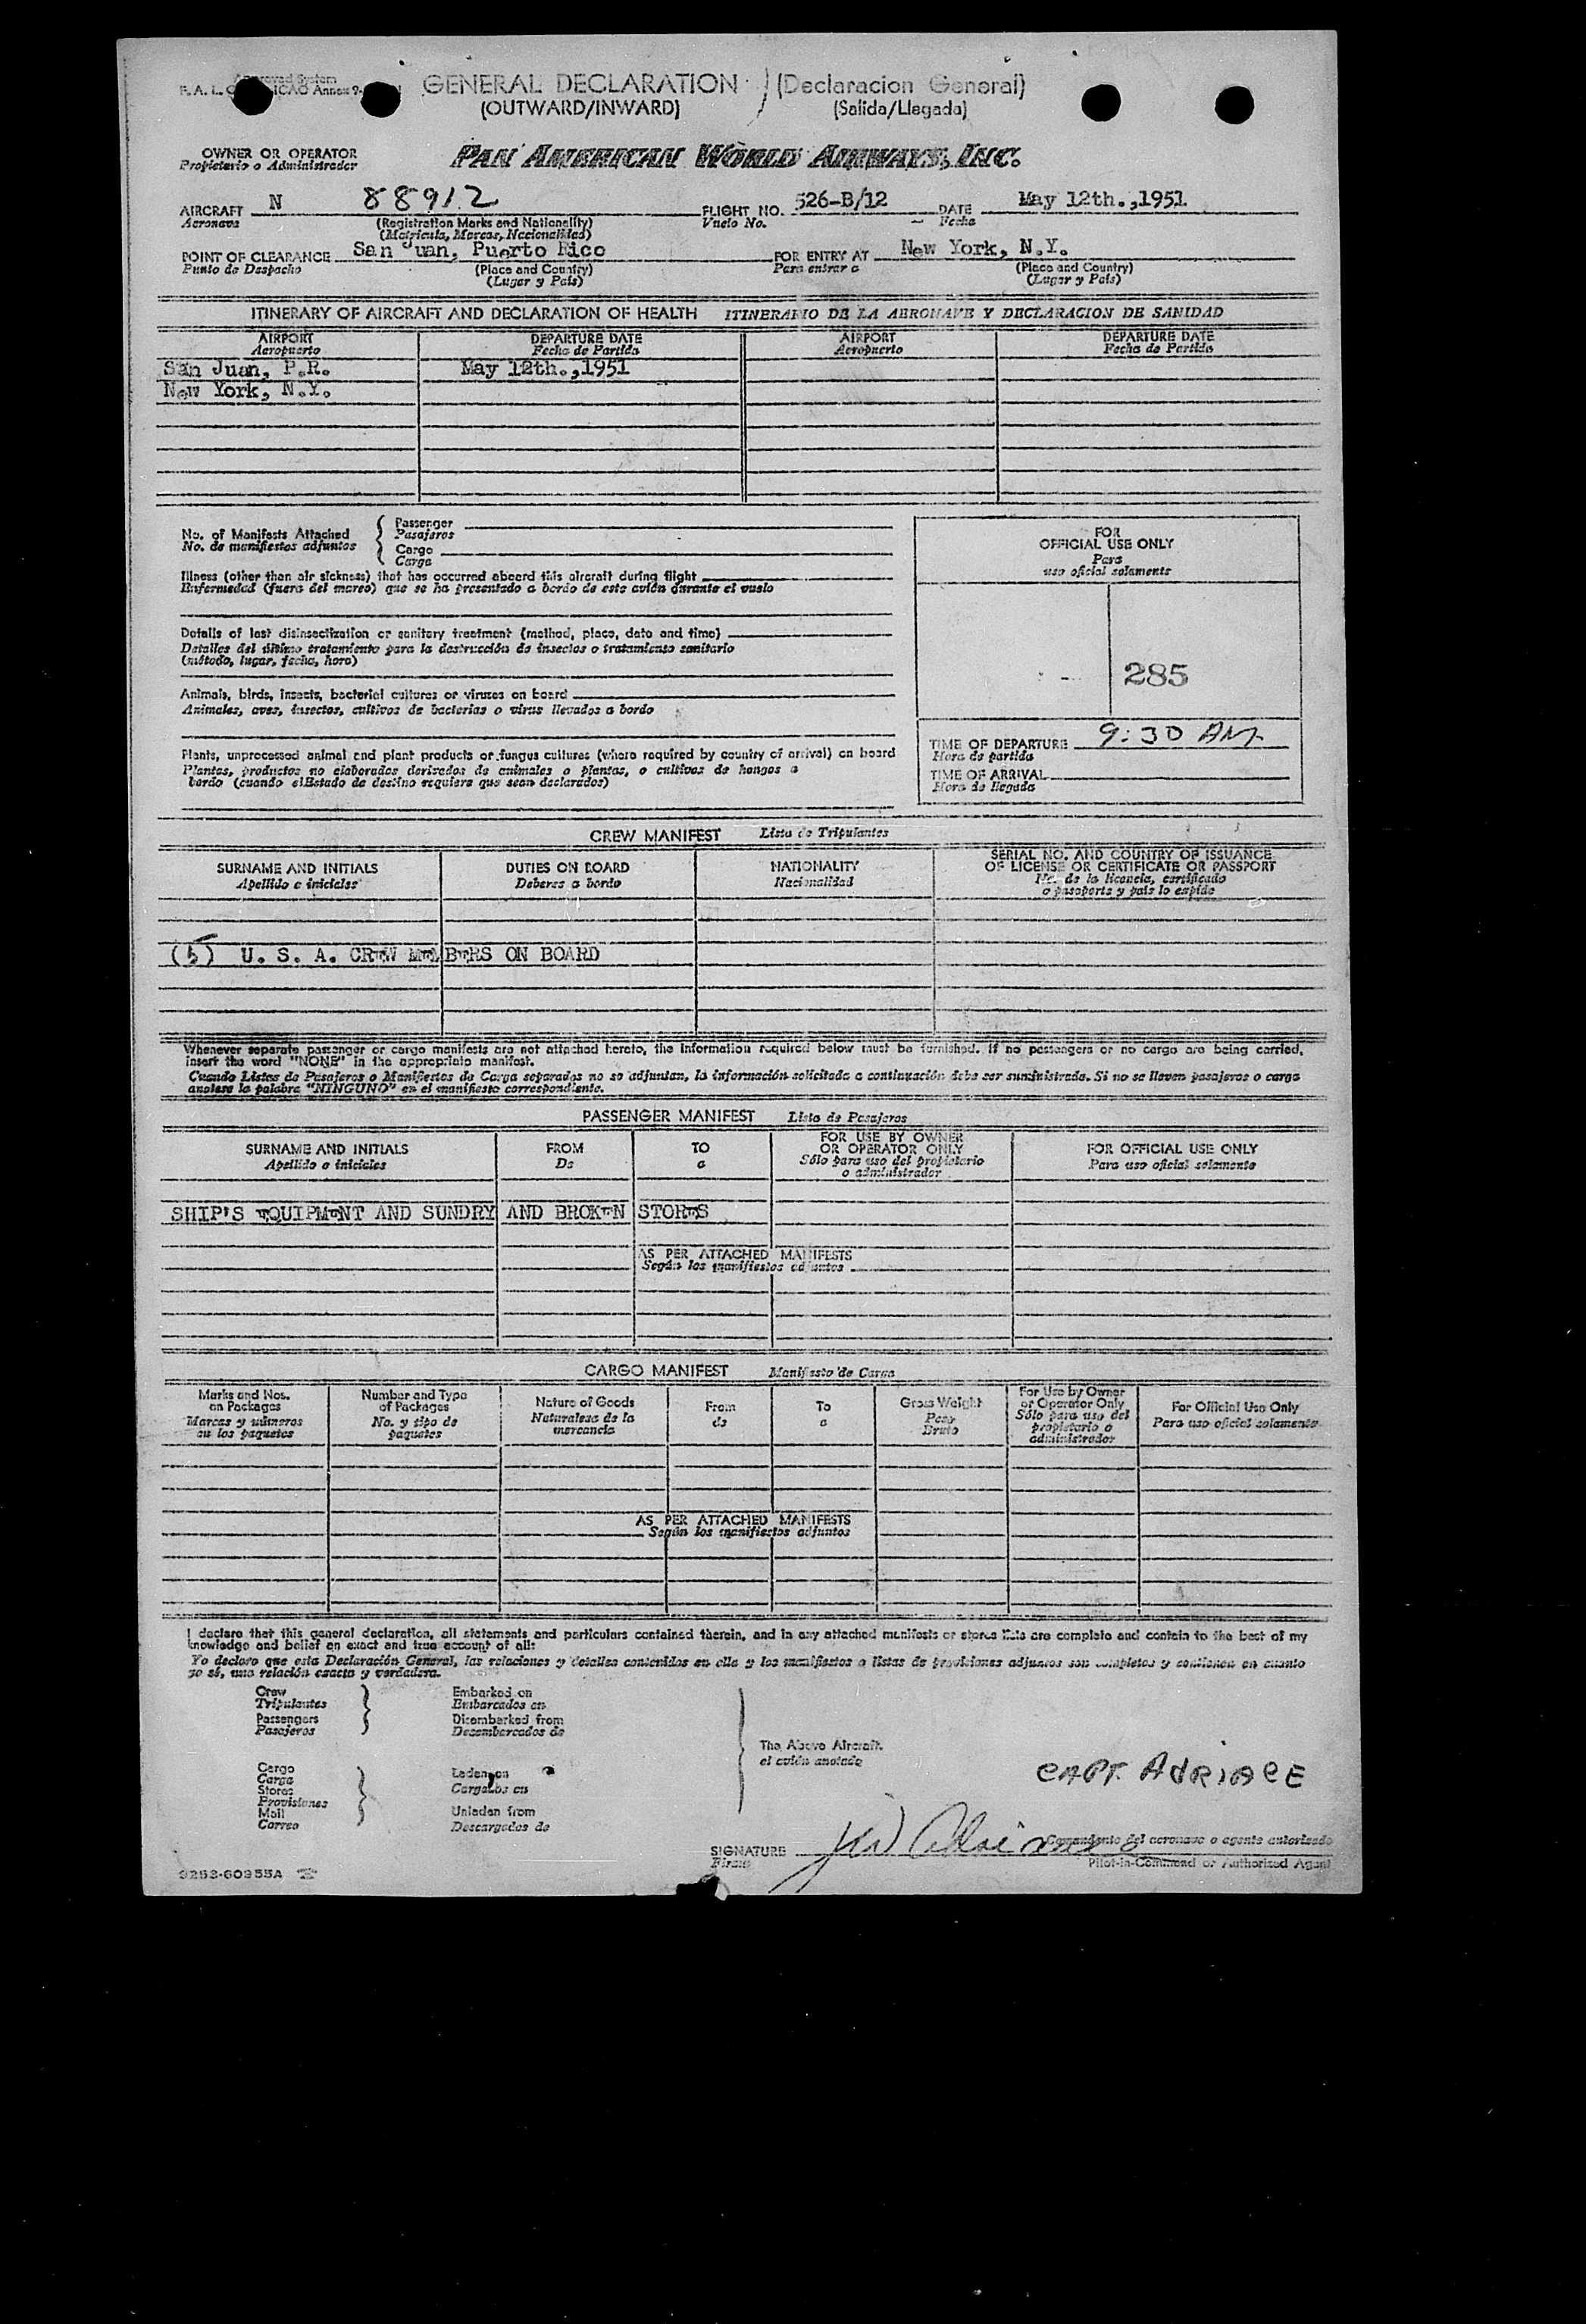 Approved System
F. A. L. ICAO Annex 9-
GENERAL DECLARATION (Declaracion General)
(OUTWARD/INWARD) (Salida/Llegada)
OWNER OR OPERATOR PAN AMERICAN WORLD AIRWAYS, INC.
Propietario o Administrador
AIRCRAFT N 88912 FLIGHT NO. 526-B/12 DATE May 12th.,1951
Aeronave (Registration Marks and Nationality) Vuelo No. Fecha
(Matricula, Marcas, Nacionalidad)
POINT OF CLEARANCE San Juan, Puerto Rico FOR ENTRY AT New York, N.Y.
Punto de Despacho (Place and Country) Para entrar a (Place and Country)
(Lugar y País) (Lugar y País)
ITINERARY OF AIRCRAFT AND DECLARATION OF HEALTH ITINERARIO DE LA AERONAVE Y DECLARACION DE SANIDAD
AIRPORT DEPARTURE DATE AIRPORT DEPARTURE DATE
Aeropuerto Fecha de Partida Aeropuerto Fecha de Partida
San Juan, P.R. May 12th.,1951
New York, N.Y.
No. of Manifests Attached Passenger
No. de manifiestos adjuntos Pasajeros
Cargo
Carga
FOR
OFFICIAL USE ONLY
Para
uso oficial solamente
Illness (other than air sickness) that has occurred aboard this aircraft during flight
Enfermedad (fuera del mareo) que se ha presentado a bordo de este avión durante el vuelo
Details of last disinsectization or sanitary treatment (method, place, date and time)
Detalles del último tratamiento para la destrucción de insectos o tratamiento sanitario
(método, lugar, fecha, hora)
285
Animals, birds, insects, bacterial cultures or viruses on board
Animales, aves, insectos, cultivos de bacterias o virus llevados a bordo
TIME OF DEPARTURE 9:30 AM
Hora de partida
TIME OF ARRIVAL
Hora de llegada
Plants, unprocessed animal and plant products or fungus cultures (where required by country of arrival) on board
Plantas, productos no elaborados derivados de animales o plantas, o cultivos de hongos a
bordo (cuando el Estado de destino requiere que sean declarados)
CREW MANIFEST Lista de Tripulantes
SURNAME AND INITIALS DUTIES ON BOARD NATIONALITY SERIAL NO. AND COUNTRY OF ISSUANCE
OF LICENSE OR CERTIFICATE OR PASSPORT
Apellido e iniciales Deberes a bordo Nacionalidad No. de la licencia, certificado
o pasaporte y país lo expide
(5) U. S. A. CREW MEMBERS ON BOARD
Whenever separate passenger or cargo manifests are not attached hereto, the information required below must be furnished. If no passengers or no cargo are being carried,
insert the word "NONE" in the appropriate manifest.
Cuando Listas de Pasajeros o Manifiestos de Carga separados no se adjuntan, la información solicitada a continuación debe ser suministrada. Si no se llevan pasajeros o carga
anotese la palabra "NINGUNO" en el manifiesto correspondiente.
PASSENGER MANIFEST Lista de Pasajeros
SURNAME AND INITIALS FROM TO FOR USE BY OWNER
OR OPERATOR ONLY FOR OFFICIAL USE ONLY
Apellido e iniciales De a Sólo para uso del propietario
o administrador Para uso oficial solamente
SHIP'S EQUIPMENT AND SUNDRY AND BROKEN STORES
AS PER ATTACHED MANIFESTS
Según los manifiestos adjuntos
CARGO MANIFEST Manifiesto de Carga
Marks and Nos.
on Packages
Marcas y números
en los paquetes
Number and Type
of Packages
No. y tipo de
paquetes
Nature of Goods
Naturaleza de la
mercancía
From
de
To
a
Gross Weight
Peso
Bruto
For Use by Owner
or Operator Only
Sólo para uso del
propietario o
administrador
For Official Use Only
Para uso oficial solamente
AS PER ATTACHED MANIFESTS
Según los manifiestos adjuntos
I declare that this general declaration, all statements and particulars contained therein, and in any attached manifests or stores lists are complete and contain to the best of my
knowledge and belief an exact and true account of all:
Yo declaro que esta Declaración General, las relaciones y detalles contenidos en ella y los manifiestos o listas de provisiones adjuntos son completos y contienen en cuanto
yo sé, una relación exacta y verdadera.
Crew
Tripulantes
Passengers
Pasajeros
Embarked on
Embarcados en
Disembarked from
Desembarcados de
The Above Aircraft.
el avión anotado
Cargo
Carga
Stores
Provisiones
Mail
Correo
Laden on
Cargados en
Unladen from
Descargados de
CAPT. AdRiAcE
SIGNATURE Comandante del aeronave o agente autorizado
Firma Pilot-in-Command or Authorized Agent
9253-60955A